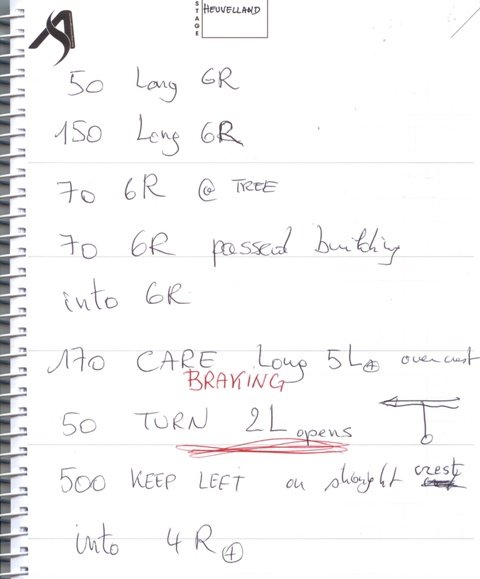 STAGE HEUVELLAND
50 Long 6R
150 Long 6R
70 6R @ TREE
70 6R passed building
into 6R
170 CARE Long 5L+ over crest
BRAKING
50 TURN 2L opens
500 KEEP LEFT on straight crest
into 4R+